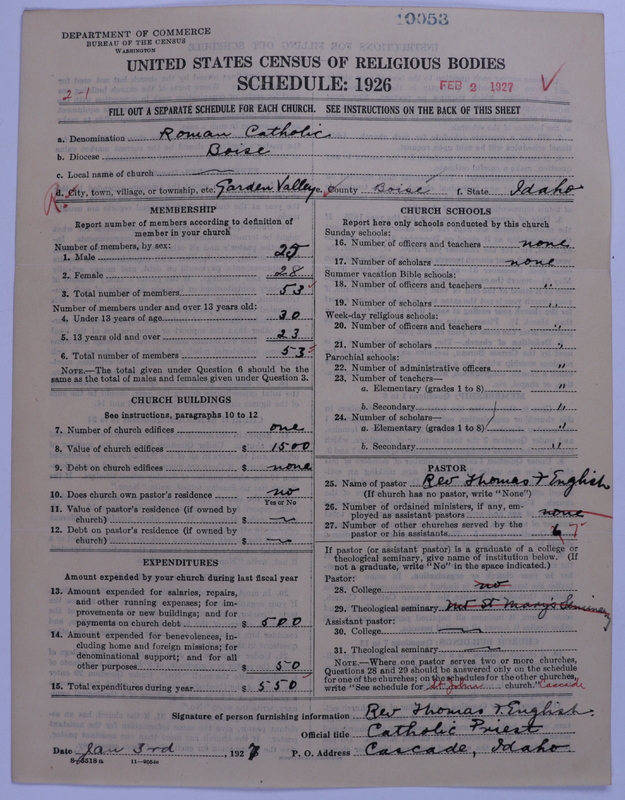 19053
DEPARTMENT OF COMMERCE
BUREAU OF THE CENSUS
WASHINGTON
UNITED STATES CENSUS OF RELIGIOUS BODIES
SCHEDULE: 1926
FEB 2 1927
2-1
FILL OUT A SEPARATE SCHEDULE FOR EACH CHURCH. SEE INSTRUCTIONS ON THE BACK OF THIS SHEET
a. Denomination Roman Catholic
b. Diocese Boise
c. Local name of church
R. d. City, town, village, or township, etc. Garden Valley e. County Boise f. State Idaho
MEMBERSHIP
Report number of members according to definition of
member in your church
Number of members, by sex:
1. Male 25
2. Female 28
3. Total number of members 53
Number of members under and over 13 years old:
4. Under 13 years of age 30
5. 13 years old and over 23
6. Total number of members 53
NOTE.—The total given under Question 6 should be
same as the total of males and females given under Question 3.
CHURCH BUILDINGS
See instructions, paragraphs 10 to 12
7. Number of church edifices one
8. Value of church edifices $ 1500
9. Debt on church edifices $ none
10. Does church own pastor's residence no
Yes or No
11. Value of pastor's residence (if owned by
church) $
12. Debt on pastor's residence (if owned by
church) $
EXPENDITURES
Amount expended by your church during last fiscal year
13. Amount expended for salaries, repairs,
and other running expenses; for im-
provements or new buildings; and for
payments on church debt $ 500
14. Amount expended for benevolences, in-
cluding home and foreign missions; for
denominational support; and for all
other purposes $ 50
15. Total expenditures during year $ 550
CHURCH SCHOOLS
Report here only schools conducted by this church
Sunday schools:
16. Number of officers and teachers none
17. Number of scholars none
Summer vacation Bible schools:
18. Number of officers and teachers "
19. Number of scholars "
Week-day religious schools:
20. Number of officers and teachers "
21. Number of scholars "
Parochial schools:
22. Number of administrative officers "
23. Number of teachers—
a. Elementary (grades 1 to 8) "
b. Secondary "
24. Number of scholars—
a. Elementary (grades 1 to 8) "
b. Secondary "
PASTOR
25. Name of pastor Rev Thomas F English
(If church has no pastor, write "None")
26. Number of ordained ministers, if any, em-
ployed as assistant pastors none
27. Number of other churches served by the
pastor or his assistants 6 7
If pastor (or assistant pastor) is a graduate of a college or
theological seminary, give name of institution below. (If
not a graduate, write "No" in the space indicated.)
Pastor:
28. College no
29. Theological seminary Mt St Mary's Seminary
Assistant pastor:
30. College
31. Theological seminary
NOTE.—Where one pastor serves two or more churches,
Questions 28 and 29 should be answered only on the schedule
for one of the churches; on the schedules for the other churches,
write "See schedule for St Johns church." Cascade
Signature of person furnishing information Rev Thomas F English.
Official title Catholic Priest
Date Jan 3rd, 1927 P. O. Address Cascade, Idaho
11—9051a